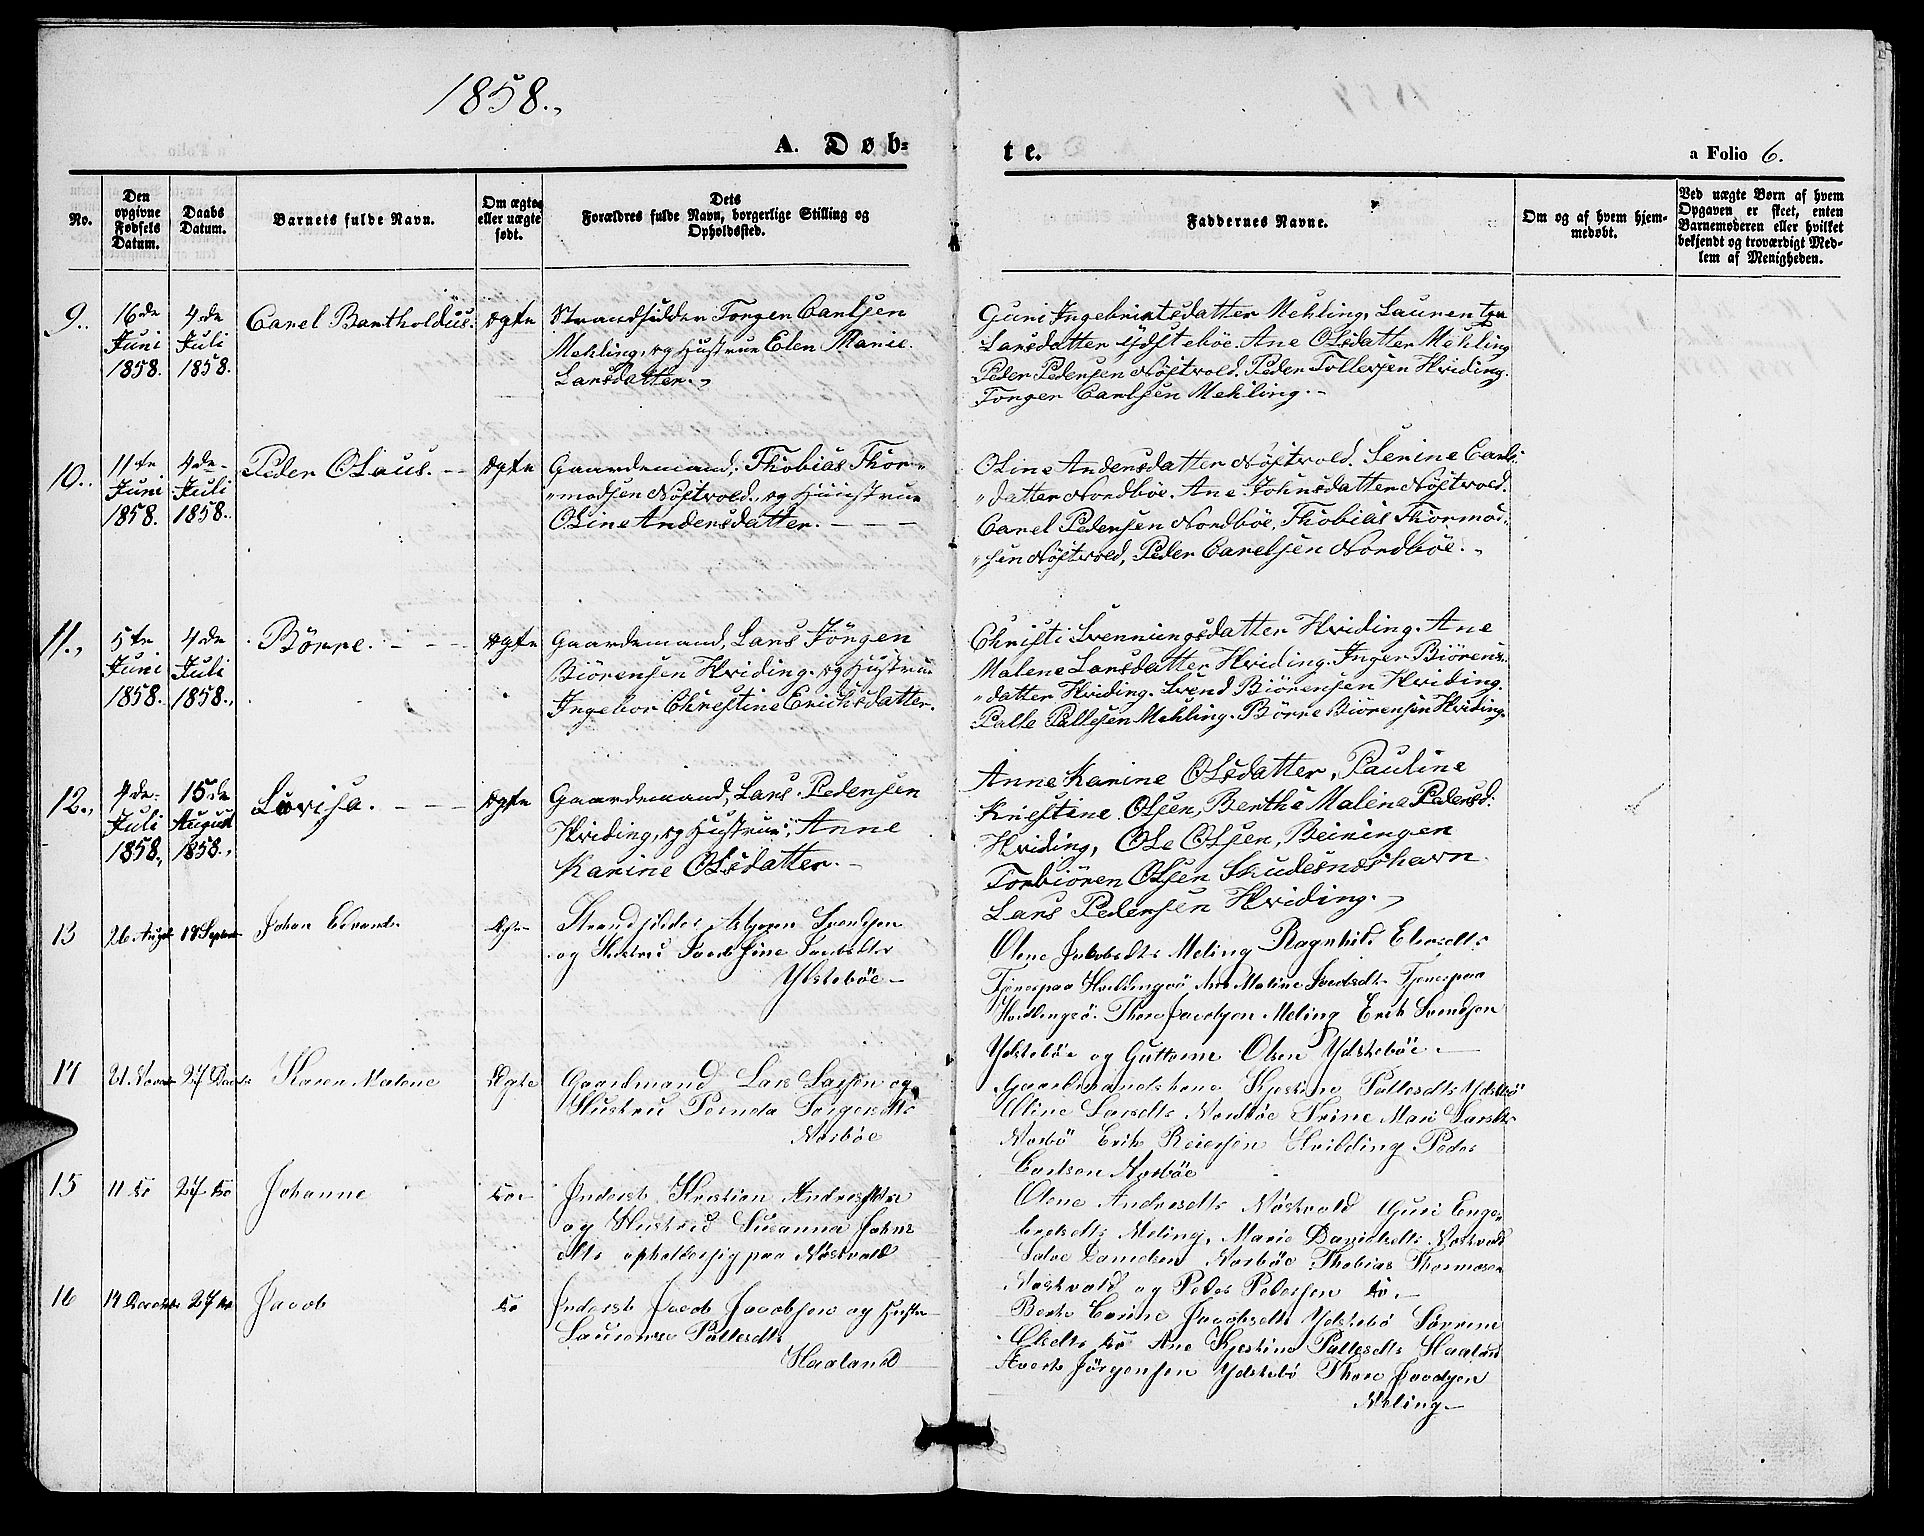 1858.,
A. Døb=
te.
a Folio 6.
No.
Den opgivne Fødsels Datum.
Daabs Datum.
Barnets fulde Navn.
Om ægte eller uægte født.
Dets Forældres fulde Navn, borgerlige Stilling og Opholdssted.
Faddernes Navne.
Om og af hvem hjemmedøbt.
Ved uægte Børn af hvem Opgaven er skeet, enten Barnemoderen eller hvilket bekjendt og troværdigt Medlem af Menigheden.
9..
16de Juni 1858.
4de Juli 1858.
Carel Bartholdüs.
ægte
Strandsidder Torger Carlsen
Mehling, og Hustrue Elen Marie.
Larsdatter.,
Guri Ingebrintsdatter Mehling, Laurentse
Larsdatter Ydstebøe. Ane Olsdatter Mehling
Peder Pedersen Nöstvold. Peder Tollersen Hviding.
Torger Carlsen Mehling.-
10..
11te Juni 1858.
4de- Juli 1858..
Peder Olaus. --
ægte
Gaardemand; Thobias Thor-
"modsen Nöstvold., og Huustrue
Oline Andersdatter. - - -
Oline Andersdatter Nöstvold. Serine Carls:
"datter Nordböe. Ane Johnsdatter Nöstvold.
Carel Pedersen Nordböe, Thobias Thormod:
"sen Nöstvold, Peder Carelsen Nordböe.,
11.,
5te Juni 1858.
4de Juli 1858.,
Börre. - - -
ægte
Gaardemand, Lars Jörgen
Biörensen Hviding. og Hustrue
Ingebor Chrestine Erichsdatter.
Christi Svenningsdatter Hviding. Ane
Malene Larsdatter Hviding. Inger Biörens..
"datter Hviding. Svend Biörensen Hviding.
Palle Pallesen Mehling. Börre Biörensen Hviding.
12.,
4de- Juli 1858.,
15de August 1858.,
Lovisa. - - -
ægte
Gaardemand, Lars Pedersen
Hviding, og Hustrue; Anne
Karine Olsdatter.-
Anne Karine Olsdatter, Pauline
Kristine Olsen, Berthe Maline Pedersd:
Hviding, Ole Olsen, Beiningen
Torbiören Olsen Skudesnæshavn.
Lars Pedersen Hviding.,
13
26 August
18 Septem
Johan Edvard
ægte
Strandsidder Asbjørn Svendsen
og Hustrue
Ydstebøe-
Olene Jakobsdtr Meling Ragnhild
Tjenespaa Hvidingsö Ane Maline Tjenespaa
Hvidingsö. Thore Jacobsen Meling Erik Svendsen
Ydstebøe og Guttorme Olsen Ydstebøe-
14
21 Novem
27 Decbr
Karen Malene
Ægte
Gaardmand Lars Larsen og
Hustrue Pernda Torgersdtr
Norbøe
Gaardmandskone Kjestine Pallesdtr Ydstebö
Oline Larsdtr Nordbøe Trine Mari Larsdtr
Norbö Erik Reiersen Hvidding Peder
Carlsen Norbøe
15
11 do
27 do
Johanne
do-
Inderst Kristian Andreassen
og Hustrue Susanna Johns
dtr opholdersig paa Nöstvold
Olene Andersdtr Nöstvold Guri Enge-
bretsdtr Meling, Marie Davidsdtr Nöstvold
Salve Danielsen Norbøe Thobias Thormosen
Nöstvold og Peder Pedersen do.-
16
14 Decembr
27 do
Jacob
do
Inderst Jacob Jacobsen og Hustru
Laurense Pallesdtr
Haaland
Berte Corine Jacobsdtr Ydstebö Serrine
Olsdtr do Ane Kjestine Pallesdtr Haaland
Svert Jörgensen Ydstebö Thore Jacobsen
Meling-